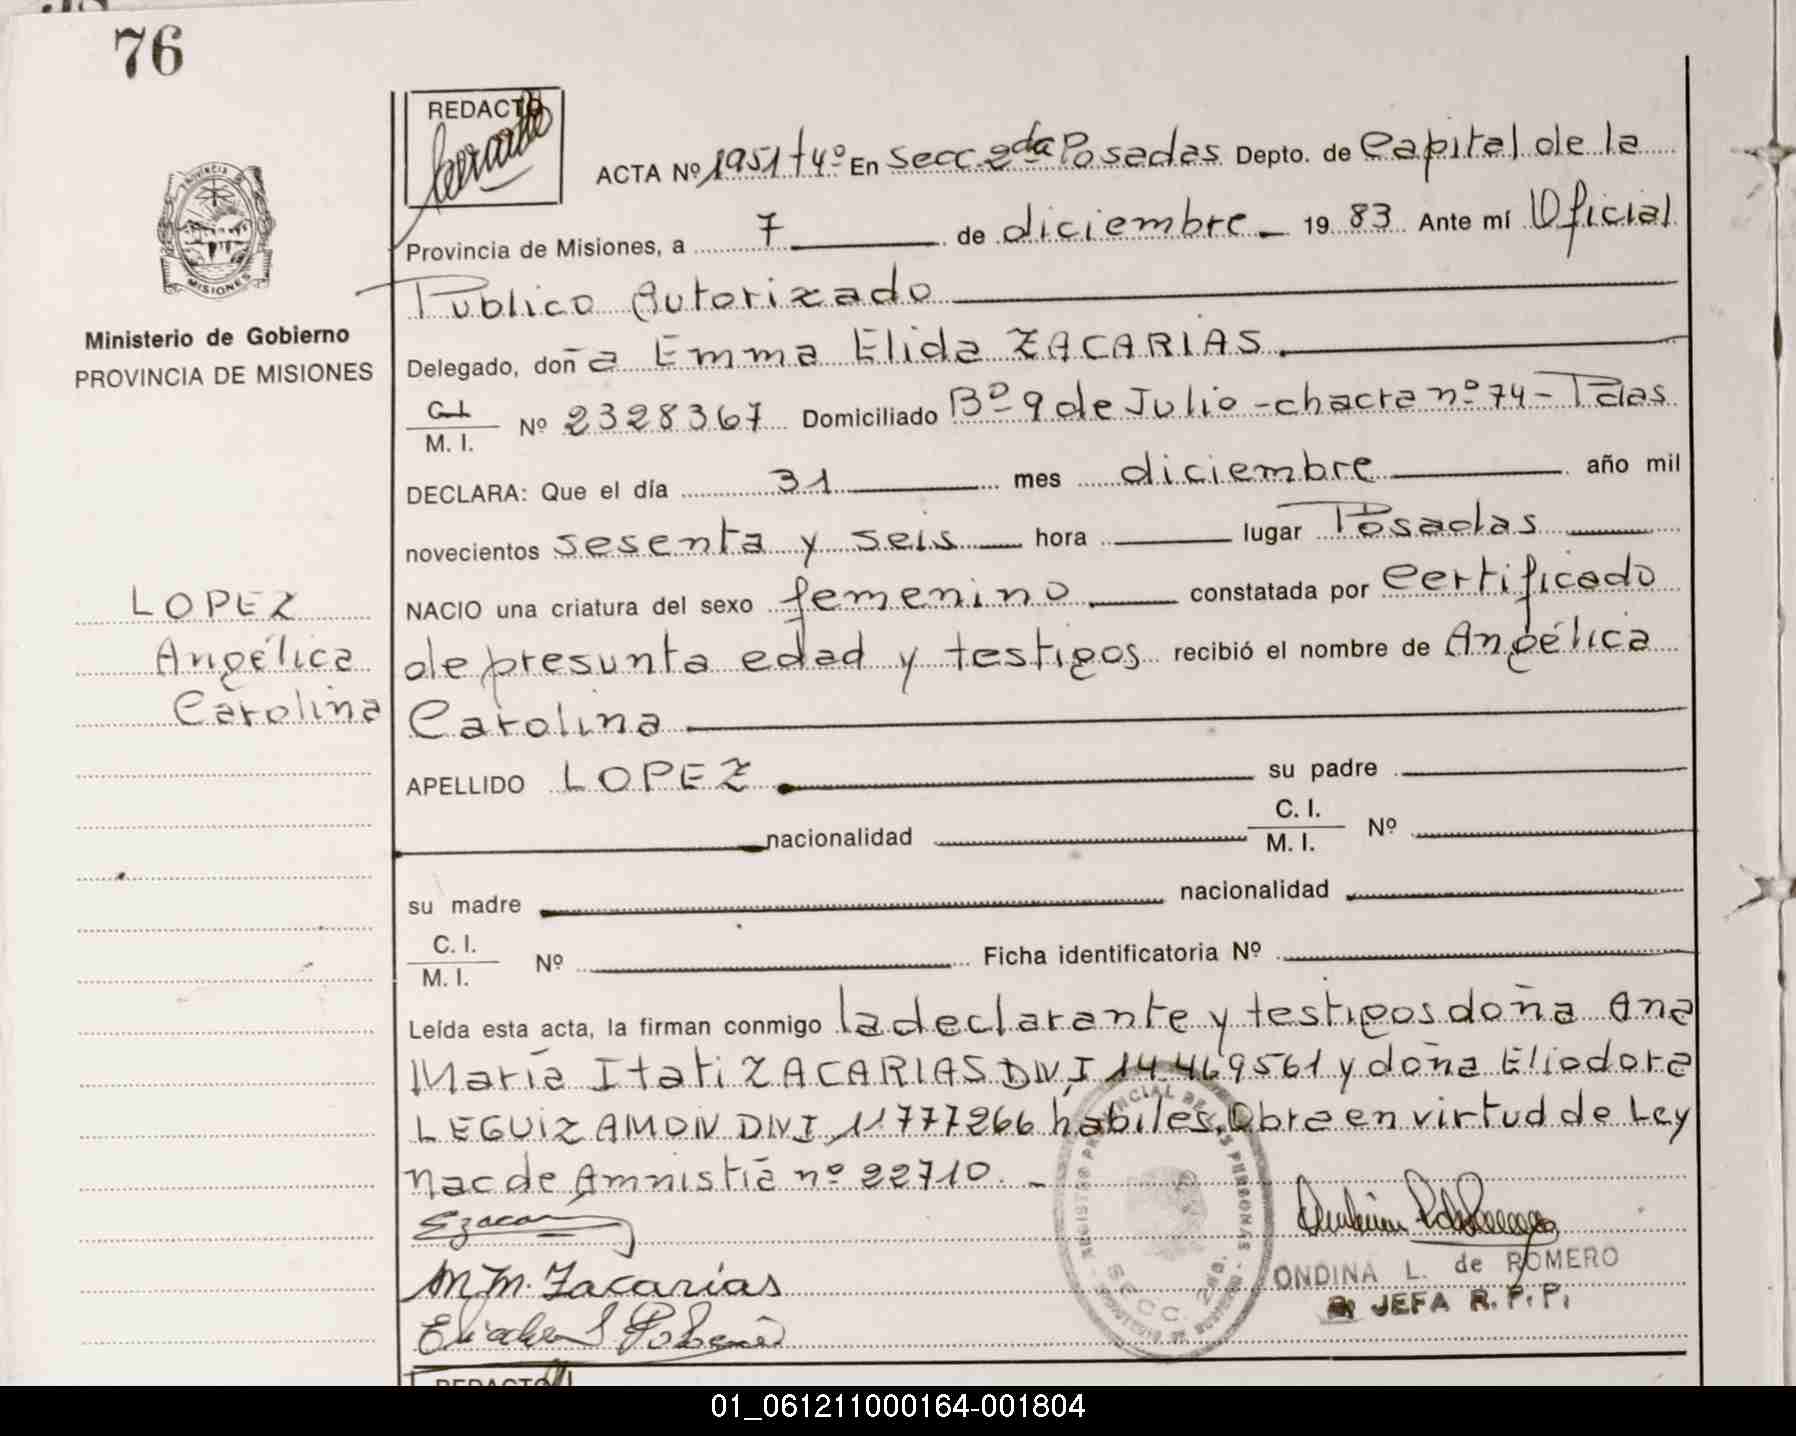 76
REDACTO
ACTA Nº 1951 t4º En Secc. 2da Posadas Depto. de Capital de la
Provincia de Misiones, a 7 de diciembre 19 83 Ante mí Oficial
Publico Autorizado
Ministerio de Gobierno
PROVINCIA DE MISIONES
Delegado, doña Emma Elida ZACARIAS
C. I.
M. I. Nº 2328367 Domiciliado Bº 9 de Julio - chacra nº 74 - Pdas
DECLARA: Que el día 31 mes diciembre año mil
novecientos sesenta y seis hora lugar Posadas
LOPEZ
Angélica
Carolina
NACIO una criatura del sexo femenino constatada por certificado
de presunta edad y testigos recibió el nombre de Angélica
Carolina
APELLIDO LOPEZ su padre
nacionalidad C. I.
M. I. Nº
su madre nacionalidad
C. I.
M. I. Nº Ficha identificatoria Nº
Leída esta acta, la firman conmigo la declarante y testigos doña Ana
María Itati ZACARIAS DNI 14.469561 y doña Eliodora
LEGUIZAMON DNI 11777266 habiles. Obra en virtud de Ley
Nac de Amnistia nº 22710.
M. M. Zacarias
ONDINA L. de ROMERO
JEFA R. P. P.
SECC. 2DA.
REDACTO
01_061211000164-001804